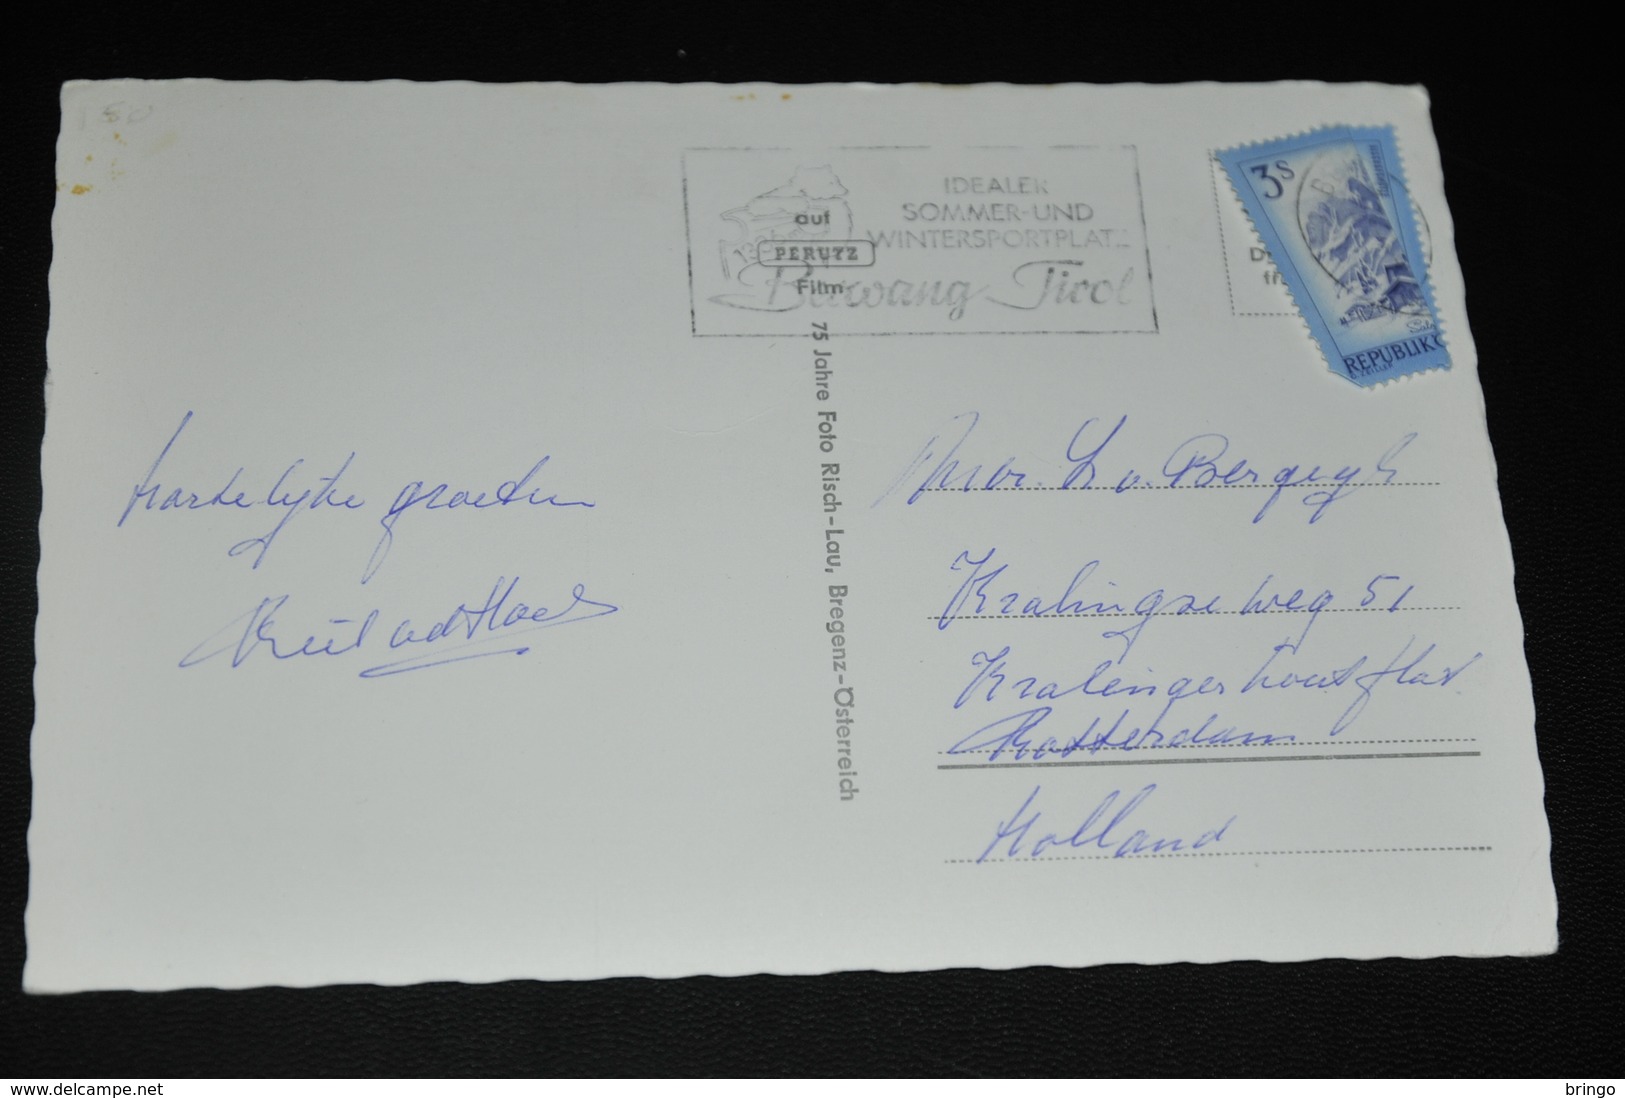 150
IDEALER
SOMMER-UND
WINTERSPORTPLATZ
Berwang Tirol
auf
PERUTZ
Film
3S
REPUBLIK
75 Jahre Foto Risch-Lau, Bregenz-Österreich
hartelijke groeten
Mevr. L v. Bergeyk
Kralingse weg 51
Kralingerhout flat
Rotterdam
Holland
www.delcampe.net
bringo